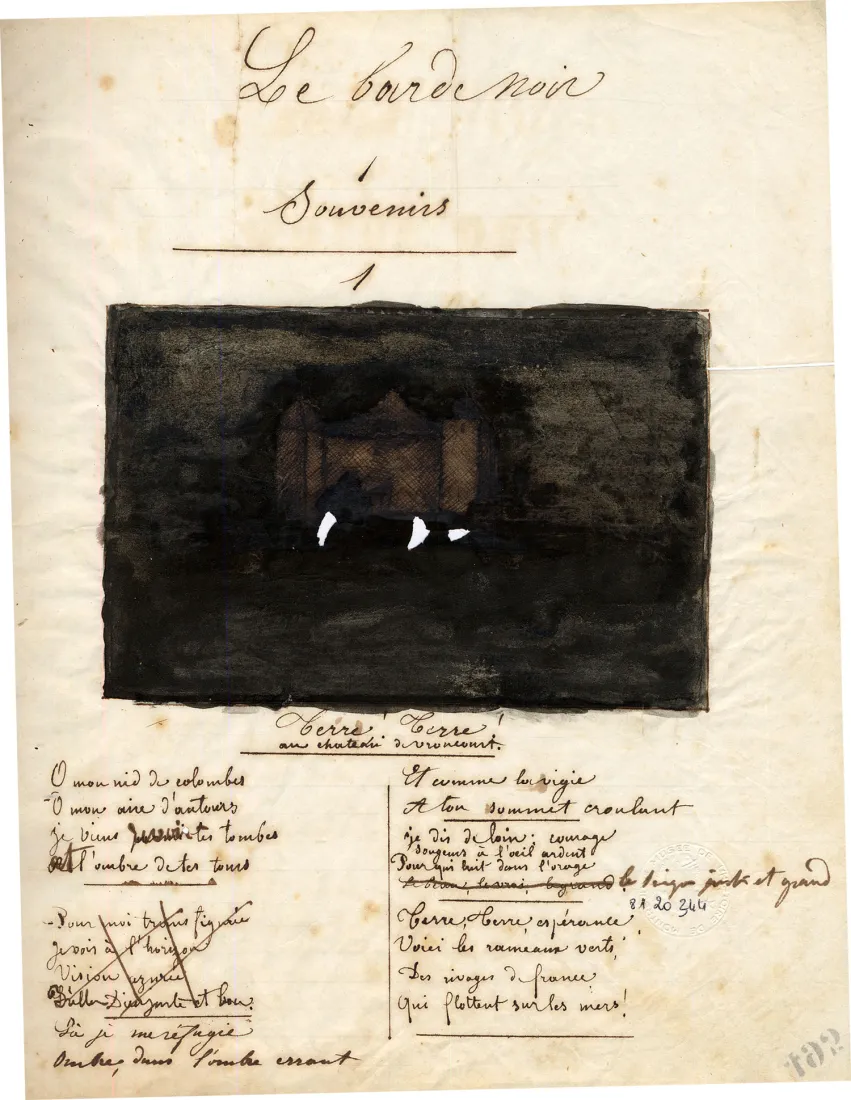 Le barde noir
1
Souvenirs
1
Terre! Terre!
au chateau de vroncourt.
O mon nid de colombes
O mon aire d'autours
je viens tes tombes
et l'ombre de tes tours
Pour moi transfigurée
Je vois à l'horizon
Vision azurée
Dieu juste et bon.
Là je me réfugie
Ombre, dans l'ombre errant
Et comme la vigie
A ton sommet croulant
je dis de loin : courage
Songeurs à l'oeil ardent
Pour qui luit dans l'orage
le beau, le vrai, le grand le juste et grand
81 20 344
Terre, Terre, espérance,
Voici les rameaux verts,
Des rivages de france
Qui flottent sur les mers!